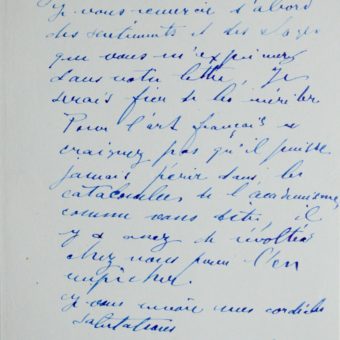 Je vous remercie d'abord
des sentiments et des éloges
que vous m'exprimez
dans votre lettre, je
serais fier de les mériter
Pour l'art français ne
craignez pas qu'il puisse
jamais périr dans les
catacombes de l'académisme,
comme vous dites, il
y a assez de révoltés
chez nous pour l'en
empêcher.
Je vous envoie mes cordiales
salutations